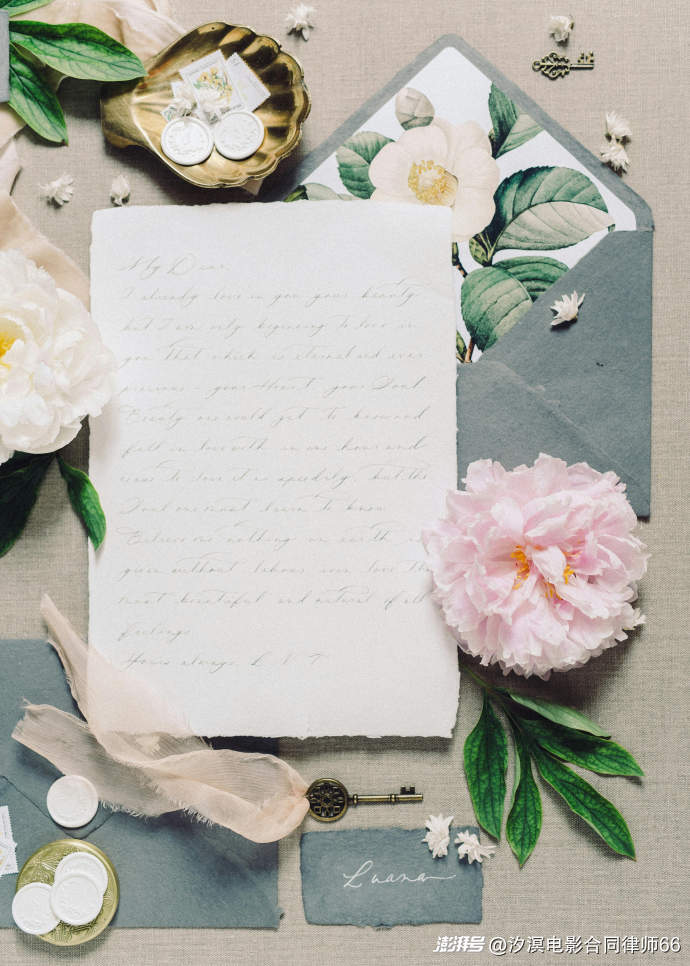 My Dear
I already love in you your beauty,
but I am only beginning to love in
you that which is eternal and ever
precious - your Heart, your Soul.
Beauty one could get to know and
fall in love with in one hour and
cease to love it as speedily, but the
Soul one must learn to know.
Believe me, nothing on earth is
given without labour, even love, the
most beautiful and natural of all
feelings
Yours always, L. N. T
Luana
澎湃号@汐溟电影合同律师66